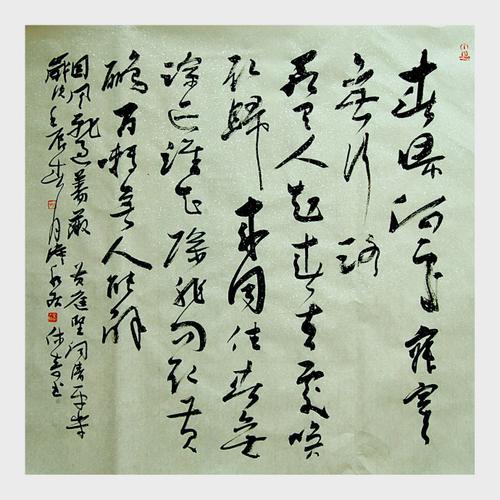 春歸何處寂寞
無行路
若有人知春去處喚
取歸來同住春無
踪迹誰知除非问取黄
鸝百囀無人能解
因風飛過薔薇 黄庭堅詞清平樂
歲次壬辰春月 书